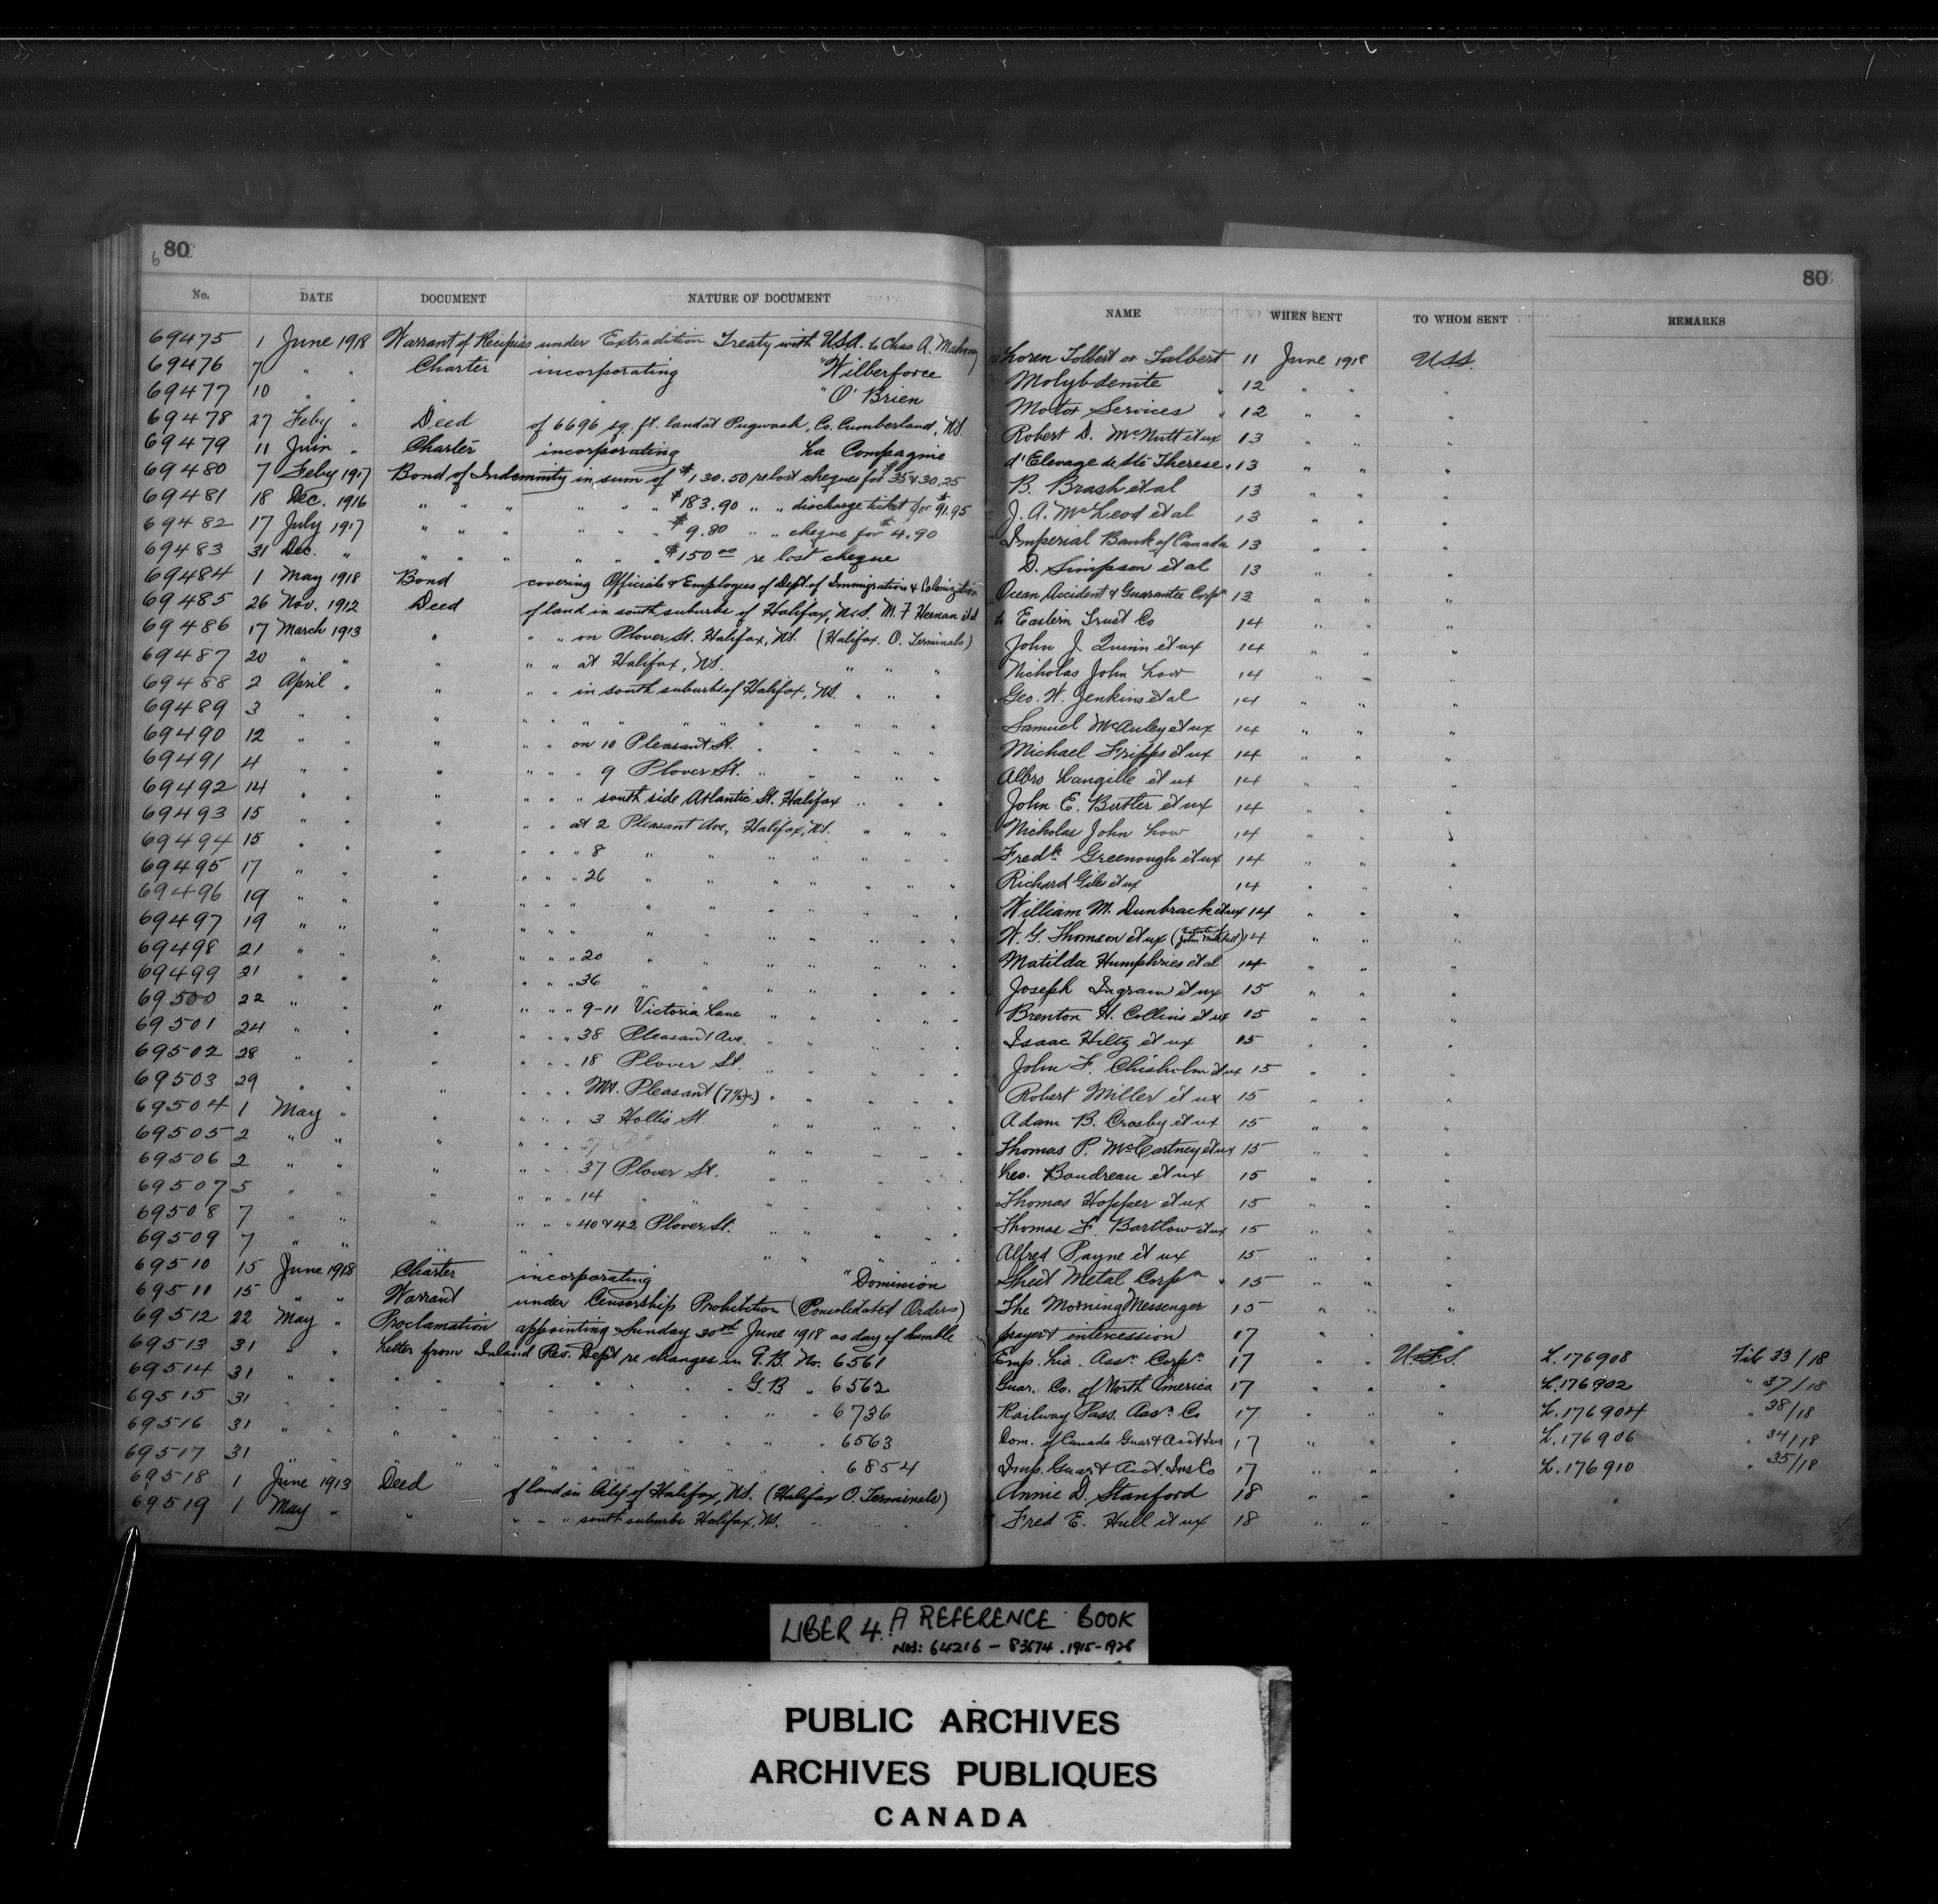 80
80
No. DATE DOCUMENT NATURE OF DOCUMENT NAME WHEN SENT TO WHOM SENT REMARKS
69475 1 June 1918 Warrant of Recipias under Extradition Treaty with U.S.A. to Chas A. Mahony re Loren Tolbert or Talbert 11 June 1918 U.S.S.
69476 7 " " Charter incorporating " Wilberforce Molybdenite " 12 " " "
69477 10 " " " " " O'Brien Motor Services " 12 " " "
69478 27 Feby " Deed of 6696 sq. ft. land at Pugwash, Co. Cumberland, N.S. Robert D. McNutt et ux 13 " " "
69479 11 Juin " Charter incorporating La Compagnie d'Elevage de Ste Therese " 13 " " "
69480 7 Feby 1917 Bond of Indemnity in sum of $130.50 re lost cheques for $35 & 30.25 B. Brash et al 13 " " "
69481 18 Dec. 1916 " " " " " " $183.90 " " discharge ticket for $91.95 J. A. McLeod et al 13 " " "
69482 17 July 1917 " " " " " " $9.80 " " cheque for $4.90 Imperial Bank of Canada 13 " " "
69483 31 Dec. " " " " " " " $150.00 re lost cheque D. Simpson et al 13 " " "
69484 1 May 1918 Bond covering Officials & Employees of Dept. of Immigration & Colonization Ocean Accident & Guarantee Corpn 13 " " "
69485 26 Nov. 1912 Deed of land in south suburbs of Halifax, N.S. M. F. Heenan et al to Eastern Trust Co 14 " " "
69486 17 March 1913 " " " on Plover St. Halifax, N.S. (Halifax O. Terminals) John J. Quinn et ux 14 " " "
69487 20 " " " " " at Halifax, N.S. " " " Nicholas John Low 14 " " "
69488 2 April " " " " in south suburbs of Halifax, N.S. " " " Geo. W. Jenkins et al 14 " " "
69489 3 " " " " " " " " " " " " Samuel McAuley et ux 14 " " "
69490 12 " " " " " on 10 Pleasant St. " " " " " Michael Fripps et ux 14 " " "
69491 4 " " " " " " 9 Plover St. " " " " " Albro Langille et ux 14 " " "
69492 14 " " " " " " south side Atlantic St. Halifax " " " John E. Butler et ux 14 " " "
69493 15 " " " " " at 2 Pleasant Ave, Halifax, N.S. " " " Nicholas John Low 14 " " "
69494 15 " " " " " " 8 " " " " " " " Fredk Greenough et ux 14 " " "
69495 17 " " " " " " 26 " " " " " " " Richard Giles et ux 14 " " "
69496 19 " " " " " " " " " " " " " " William M. Dunbrack et ux 14 " " "
69497 19 " " " " " " " " " " " " " W. G. Thomson et ux (John Mitchell) 14 " " "
69498 21 " " " " " " 20 " " " " " " " Matilda Humphries et al 14 " " "
69499 21 " " " " " " 36 " " " " " " " Joseph Ingram et ux 15 " " "
69500 22 " " " " " " 9-11 Victoria Lane " " " " " Brenton H. Collins et ux 15 " " "
69501 24 " " " " " " 38 Pleasant Ave. " " " " " Isaac Hiltz et ux 15 " " "
69502 28 " " " " " " 18 Plover St. " " " " " John F. Chisholm et ux 15 " " "
69503 29 " " " " " " Mt. Pleasant " " " " " Robert Miller et ux 15 " " "
69504 1 May " " " " " 3 Hollis St. " " " " " Adam B. Crosby et ux 15 " " "
69505 2 " " " " " " " " " " " Thomas P. McCartney et ux 15 " " "
69506 2 " " " " " " 37 Plover St. " " " " " Leo. Boudreau et ux 15 " " "
69507 5 " " " " " " 14 " " " " " " " Thomas Hopper et ux 15 " " "
69508 7 " " " " " " 40 & 42 Plover St. " " " " " Thomas F. Bartlow et ux 15 " " "
69509 7 " " " " " " " " " " Alfred Payne et ux 15 " " "
69510 15 June 1918 Charter incorporating " Dominion Sheet Metal Corpn " 15 " " "
69511 15 " " Warrant under Censorship Prohibition (Consolidated Orders) The Morning Messenger 15 " " "
69512 22 May " Proclamation appointing Sunday 30th June 1918 as day of humble prayer & intercession 17 " " "
69513 31 " " Letter from Inland Rev. Dept re changes in G.B. No. 6561 Emp. Lia. Assn. Corpn. 17 " " U.S.S. L.176908 File 33/18
69514 31 " " " " " " " " " G.B " 6562 Guar. Co. of North America 17 " " " L.176902 " 37/18
69515 31 " " " " " " " " " " " 6736 Railway Pass. Assn. Co 17 " " " L.176904 " 38/18
69516 31 " " " " " " " " " " " 6563 Dom. of Canada Guar & Acct Ins 17 " " " L.176906 " 34/18
69517 31 " " " " " " " " " " " 6854 Imp. Guar. & Acct. Ins Co 17 " " " L.176910 " 35/18
69518 1 June 1913 Deed of land in City of Halifax, N.S. (Halifax O. Terminals) Annie D. Stanford 18 " " "
69519 1 May " " " " " south suburbs Halifax, N.S. " " " Fred E. Hull et ux 18 " " "
LIBER 4. A REFERENCE BOOK
NOS: 64216 - 83674. 1915-1928
PUBLIC ARCHIVES
ARCHIVES PUBLIQUES
CANADA